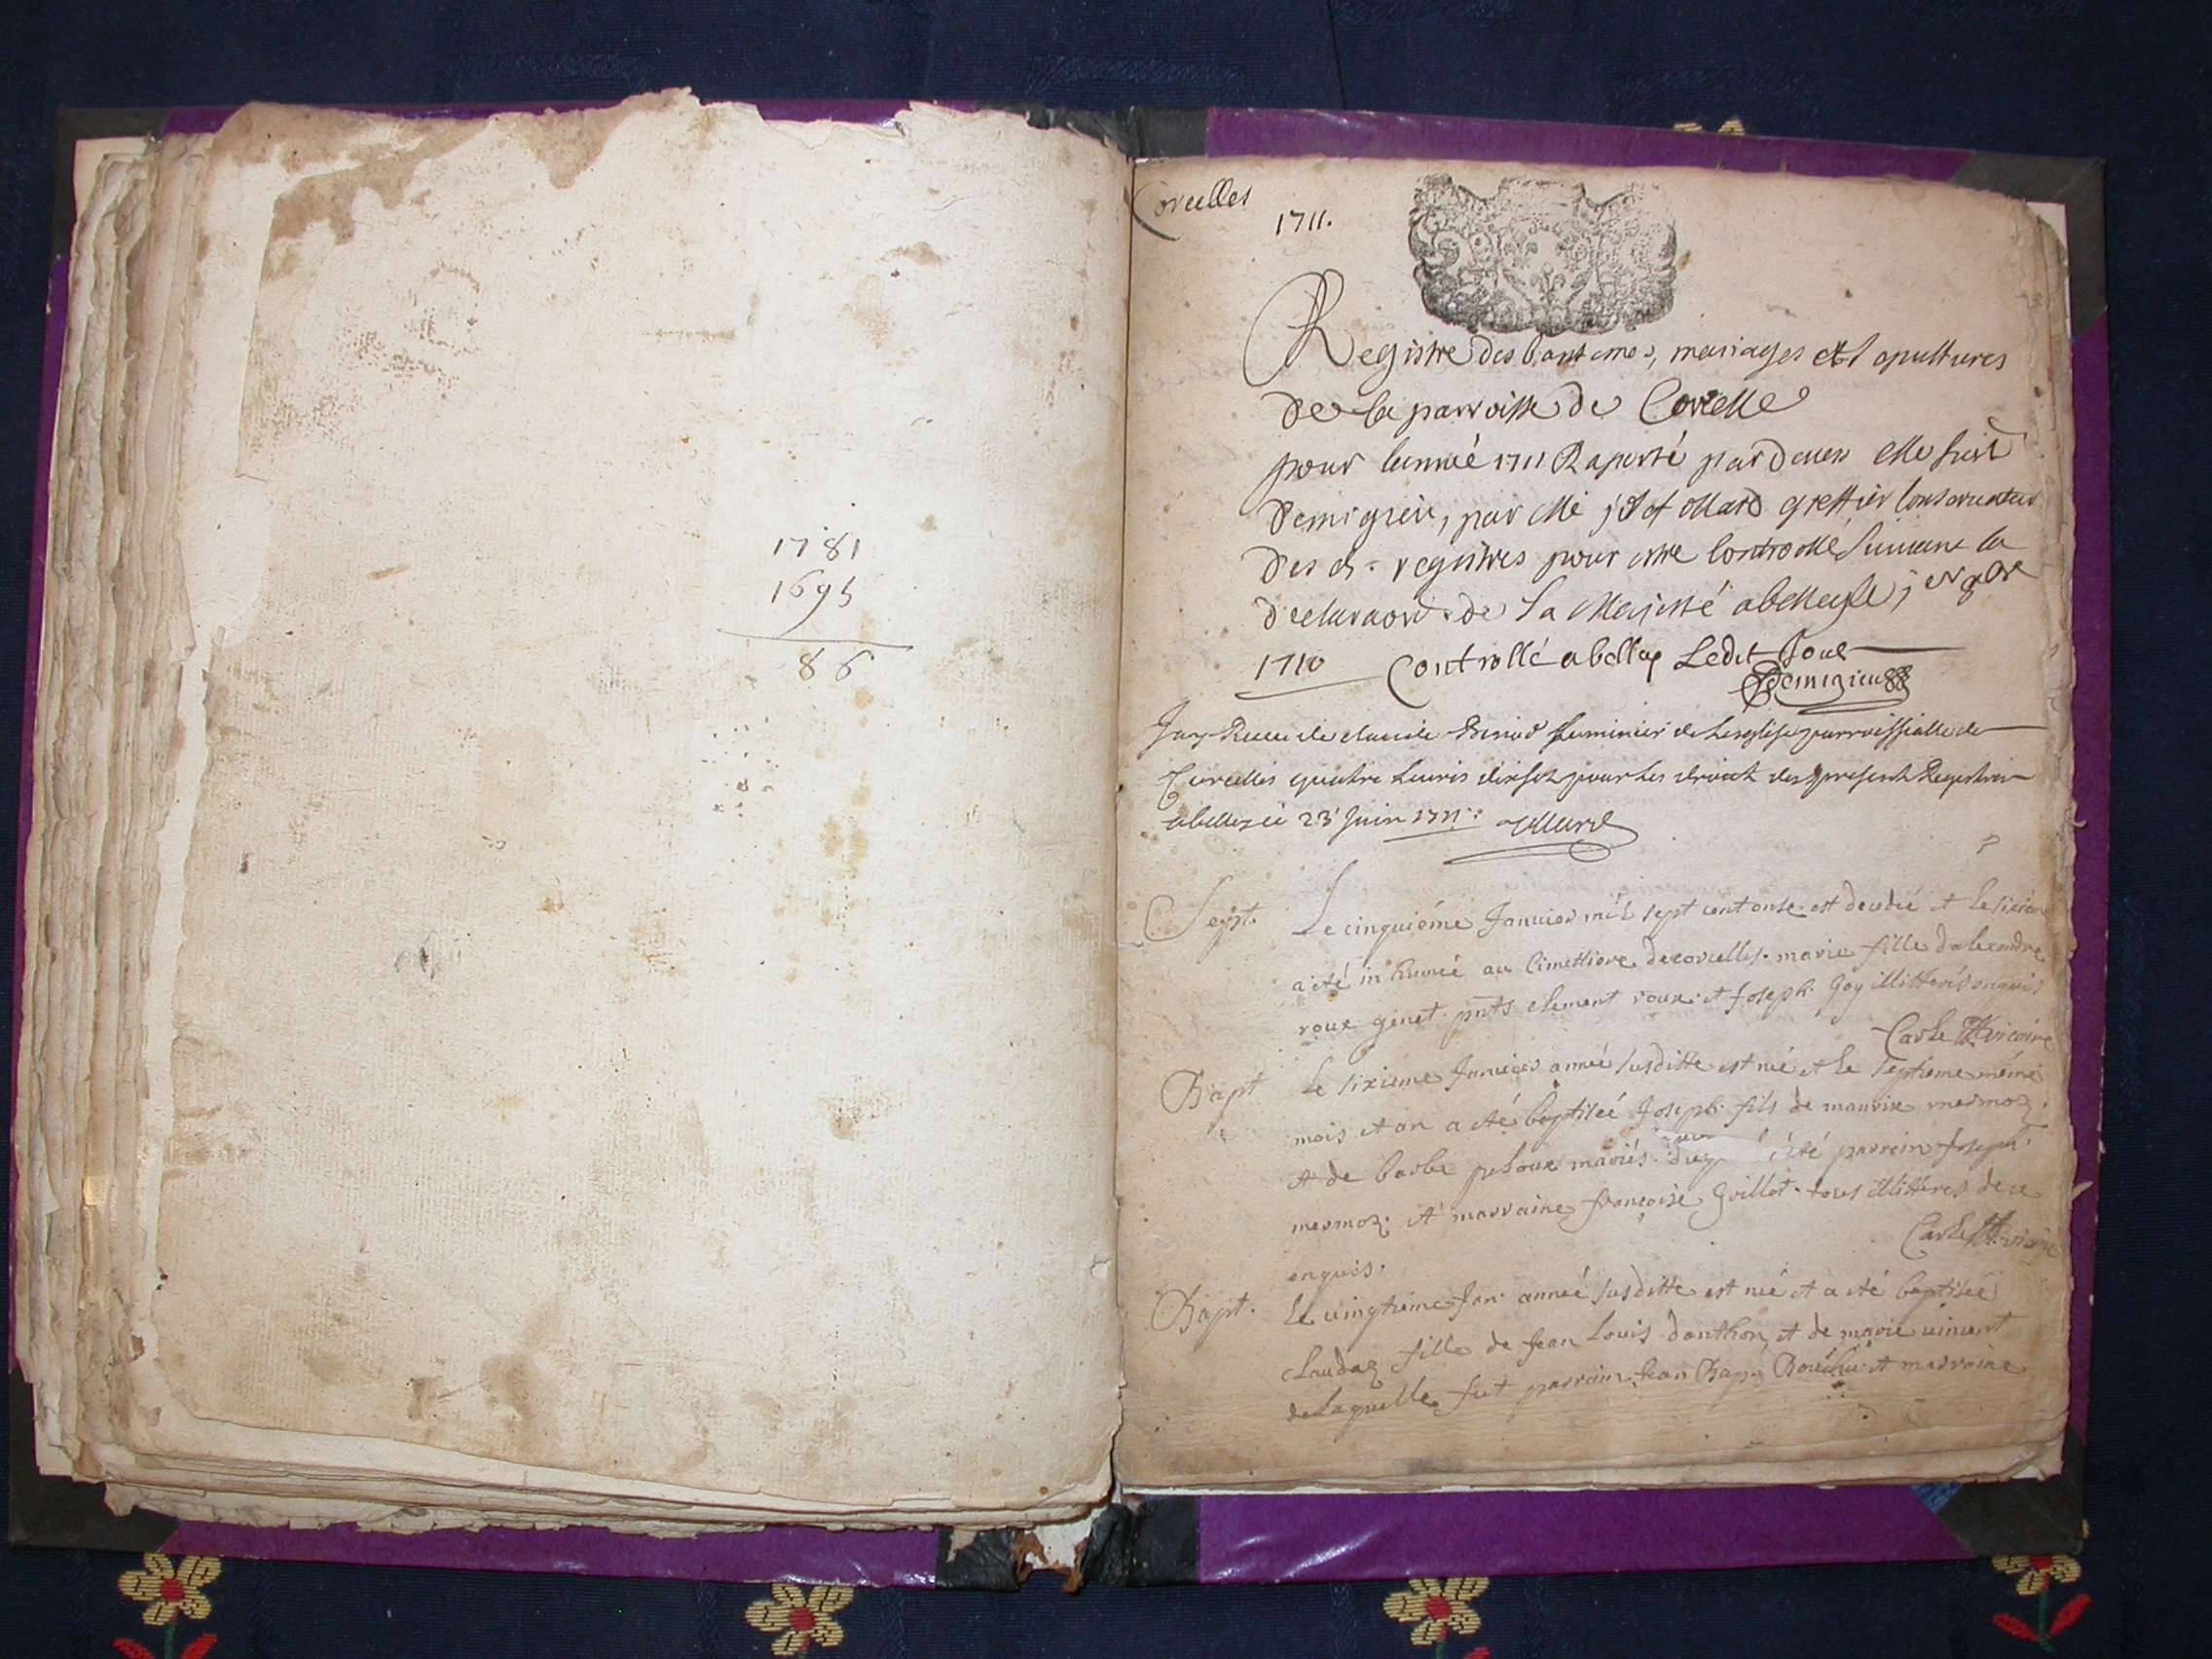 1781
1695
86
Corcelles
1711.
Registre des baptemes, mariages et sepultures
de la parroisse de Corcelle
pour lannée 1711 Raporté pardeuen
par Me greffier Conseruateur
des dt. registres pour estre Controollé suiuant la
declaraon de Sa Majesté abelley le
1710 Controllé abelley Ledit Jour
Demigieu
Jay Receu de claude luminier de Lesglise parroissialle de
Corcelles quatre Liures dixsolz pour Les droict des present Registres
abelley ce 23e Juin 1711
Sept. Le cinquiéme Januier mil sept cent onse est decedié et le sixiéme
a été in humeé au Cimettiere de corcelles. marie fille dalexandre
roux ginet. pnts clement roux. et Joseph Goy illitterés enquis
Carle vicaire
Bapt le sixieme Januier année susditte est né et le septieme méme
mois et an a été baptiseé Joseph fils de maurise mermoz.
et de barbe peloux mariés. été parrein Joseph
mermoz. et marraine françoise Guillot. tous illitteres de ce
Carle vicaire
enquis.
Bapt. le uingtieme Jan. année susditte est née et a été baptiseé
claudaz fille de Jean Louis danthon, et de marie uincent
de Laquelle fut parrain Jean Bapt et marraine